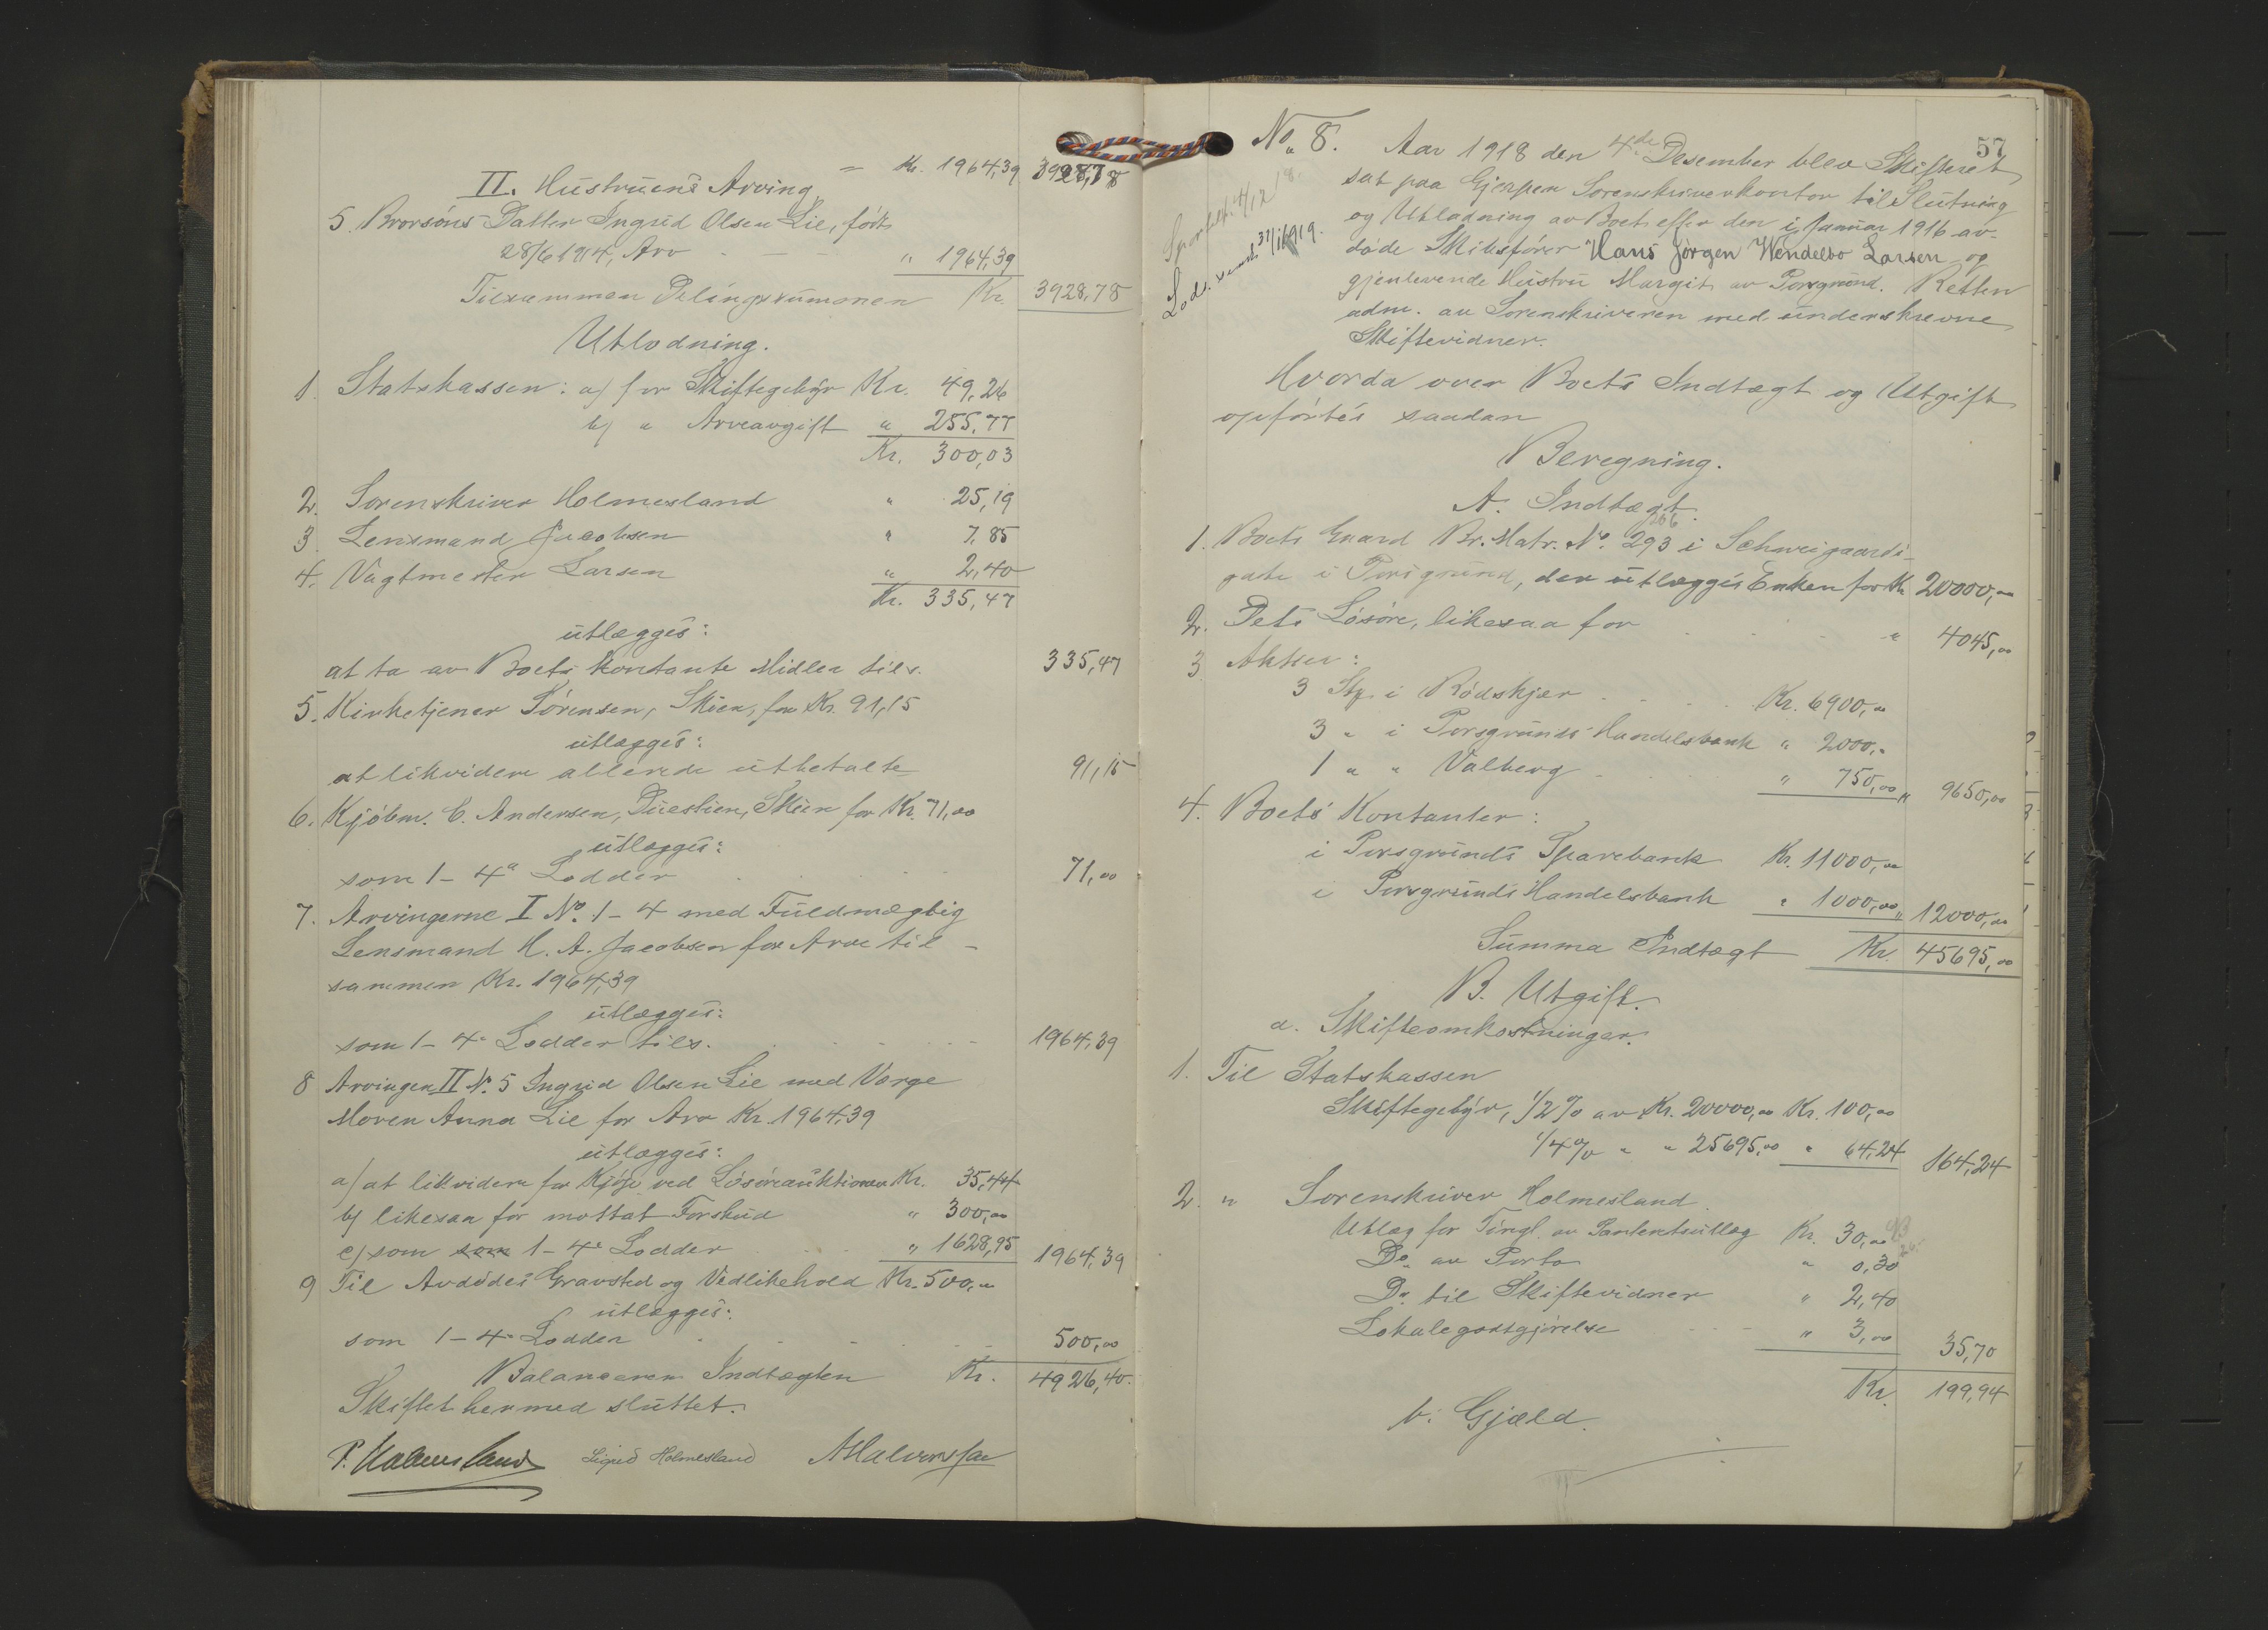 – Kr. 1964,39 3928,78
II. Hustruens Arving
5. Brorsöns Datter Ingrid Olsen Lie, född
28/6 1914, Arv - - - " 1964,39
Tilsammen Delingssummen Kr. 3928,78
Utlodning.
1. Statskassen: a) for Skiftegebyr Kr. 49,26
b) " Arveavgift " 255,77
Kr. 300,03
2. Sorenskriver Holmesland " 25,19
3. Lensmand Jacobsen " 7,85
4. Vagtmester Larsen " 2,40
Kr. 335,47
utlægges:
at ta av Boets kontante Midler tils. 335,47
5. Kirketjener Sörensen, Skien, for Kr. 91,15
utlægges:
at likvidere allerede utbetalte 91,15
6. Kjöbm. C. Andersen, Duestien, Skien for Kr. 71,00
utlægges:
som 1 - 4a Lodder 71,00
7. Arvingerne I No. 1 - 4 med Fuldmægtig
Lensmand H. A. Jacobsen for Arve til-
sammen Kr. 1964,39
utlægges:
som 1 - 4a Lodder tils. 1964,39
8 Arvingen II No. 5 Ingrid Olsen Lie med Verge
Moren Anna Lie for Arv Kr. 1964,39
utlægges:
a) at likvidere for Kjöp ved Lösöreauktionen Kr. 35,44
b) likesaa for mottat Forskud " 300,00
c) som som 1 - 4a Lodder " 1628,95 1964,39
9 Til Avdödes Gravsted og Vedlikehold Kr. 500,00
utlægges:
som 1 - 4a Lodder 500,00
Balancerer Indtægten Kr. 4926,40.
Skiftet hermed sluttet.
P. Holmesland Sigrid Holmesland A Halvorsen
57
No. 8. Aar 1918 den 4de Desember blev Skifteret
sat paa Gjerpen Sorenskriverkontor til Slutning
og Utlodning av Boet efter den i Januar 1916 av-
döde Skibsförer Hans Jörgen Wendelbo Larsen og
gjenlevende Hustru Margit av Porsgrund. Retten
adm. av Sorenskriveren med underskrevne
Skiftevidner.
Sportelf. 4/12 18.
Lodd. sendt 31/1 1919.
Hvorda over Boets Indtægt og Utgift
opförtes saadan
Beregning.
A. Indtægt.
266
1. Boets Gaard Br. Matr. No. 293 i Schweigaards-
gate i Porsgrund, der utlægges Enken for Kr. 20000,00
2. Dets Lösöre, likesaa for " 4045,00
3 Aktier:
3 Stk. i Rödskjær Kr. 6900,00
3 " i Porsgrunds Handelsbank " 2000,00
1 " " Valberg " 750,00 " 9650,00
4. Boets Kontanter:
i Porsgrunds Sparebank Kr. 11000,00
i Porsgrunds Handelsbank " 1000,00 " 12000,00
Summa Indtægt Kr. 45695,00
B. Utgift.
a. Skifteomkostninger.
1. Til Statskassen
Skiftegebyr, 1/2 % av Kr. 20000,00 Kr. 100,00
1/4 % " " 25695,00 " 64,24 164,24
2. " Sorenskriver Holmesland
Utlæg for Tingl. av Panteretsutlæg Kr. 30,00
Do. av Porto " 0,30
Do. til Skiftevidner " 2,40
Lokalegodtgjörelse " 3,00 35,70
Kr. 199,94
b. Gjæld.